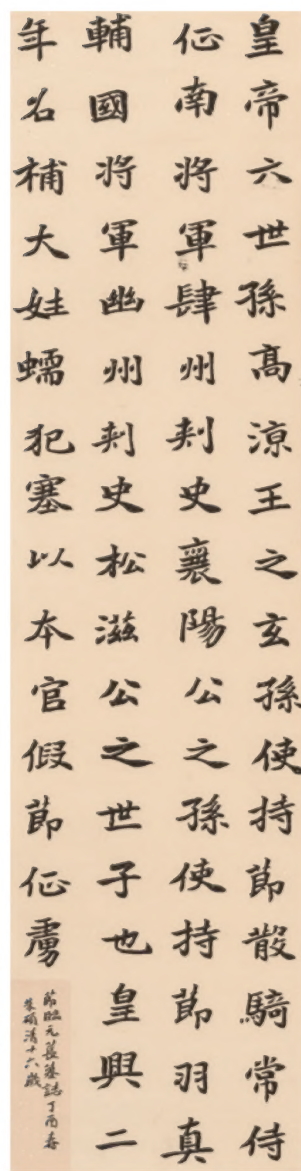 皇帝六世孫高涼王之玄孫使持節散騎常侍
征南將軍肆州刺史襄陽公之孫使持節羽真
輔國將軍幽州刺史松滋公之世子也皇興二
年名補大姓蠕犯塞以本官假節征虜
節臨元萇墓誌丁酉春